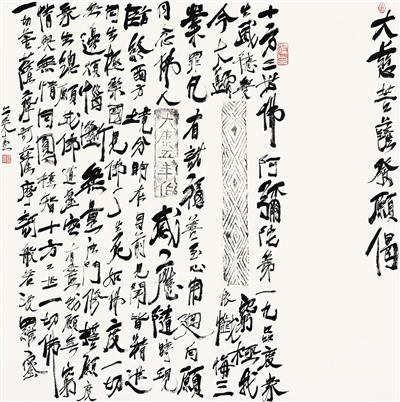 大慈菩薩發願偈
十方三世佛阿彌陀第一九品度衆
生威德無窮極我
今大歸依懺悔三
業罪凡有諸福善至心用迴向願
同念佛人感應隨時現
臨終西方境分明在目前見聞皆精進
同生極樂國見佛了生死如佛度一切
無邊煩惱斷無量法門修誓願度
衆生總願成佛道虛空有盡我願無窮
情與無情同圓種智十方三世一切佛
一切菩薩摩訶薩摩訶般若波羅蜜